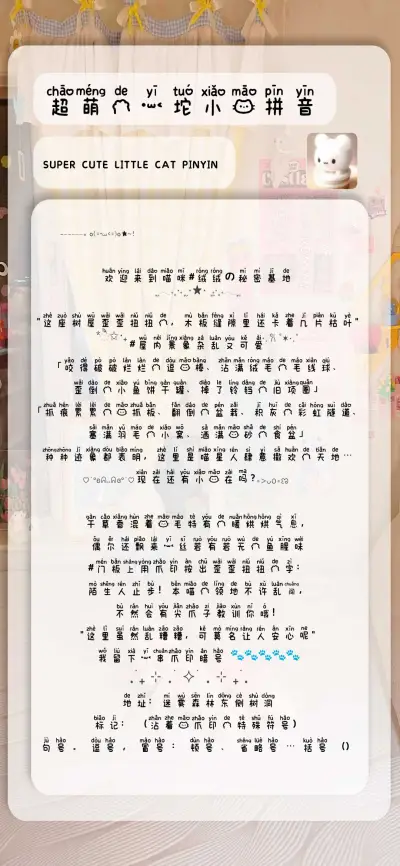 chāo méng de yī tuó xiǎo māo pīn yīn
超萌的一坨小猫拼音
SUPER CUTE LITTLE CAT PINYIN
huān yíng lái dào miāo mī róng róng mì mì jī de
欢迎来到喵咪#绒绒の秘密基地
zhè zuò shù wū wāi wāi niǔ niǔ de mù bǎn fèng xì lǐ hái kǎ zhe jǐ piàn kū yè
"这座树屋歪歪扭扭的,木板缝隙里还卡着几片枯叶"
wū nèi jǐng xiàng zá luàn yòu kě ài
#屋内景象杂乱又可爱
yǎo dé pò pò làn làn de dòu māo bàng zhān mǎn róng máo de máo xiàn qiú
「咬得破破烂烂的逗猫棒、沾满绒毛的毛线球、
wāi dǎo de xiǎo yú bǐng gān guàn diào le líng dāng de jiù xiàng quān
歪倒的小鱼饼干罐、掉了铃铛的旧项圈」
zhuā hén lěi lěi de māo zhuā bǎn fān dǎo de pén zāi jī huī de cǎi hóng suì dào
「抓痕累累的猫抓板、翻倒的盆栽、积灰的彩虹隧道、
sāi mǎn yǔ máo de xiǎo wō sǎ mǎn māo shā de shí pén
塞满羽毛的小窝、洒满猫砂的食盆」
zhǒng zhǒng jì xiàng dōu biǎo míng zhè lǐ shì miāo xīng rén sì yì sā huān de tiān de
种种迹象都表明,这里是喵星人肆意撒欢的天地…
xiàn zài hái yǒu xiǎo māo zài ma
现在还有小猫在吗?
gān cǎo xiāng hùn zhe māo máo tè yǒu de nuǎn hōng hōng qì xī
干草香混着猫毛特有的暖烘烘气息,
ǒu ěr hái piāo lái yī sī ruò yǒu ruò wú de yú xīng wèi
偶尔还飘来一丝若有若无的鱼腥味
mén bǎn shàng yòng zhǎo yìn àn chū wāi wāi niǔ niǔ de zì
#门板上用爪印按出歪歪扭扭的字:
mò shēng rén zhǐ bù běn miāo de lǐng de bù xǔ luàn chuǎng
陌生人止步!本喵的领地不许乱闯,
bù rán huì yǒu jiān zhǎo zi jiào xùn nǐ ó
不然会有尖爪子教训你哦!
zhè lǐ suī rán luàn zāo zāo kě mò míng ràng rén ān xīn ne
"这里虽然乱糟糟,可莫名让人安心呢"
wǒ liú xià yī chuàn zhǎo yìn àn hào
我留下一串爪印暗号 🐾🐾🐾🐾🐾
de zhǐ mí wù sēn lín dōng cè shù dòng
地址:迷雾森林东侧树洞
biāo jì zhān zhe māo zhǎo yìn de tè shū fú hào
标记:(沾着猫爪印的特殊符号)
jù hào dòu hào mào hào dùn hào shěng lüè hào kuò hào
句号。逗号,冒号:顿号、省略号…括号()